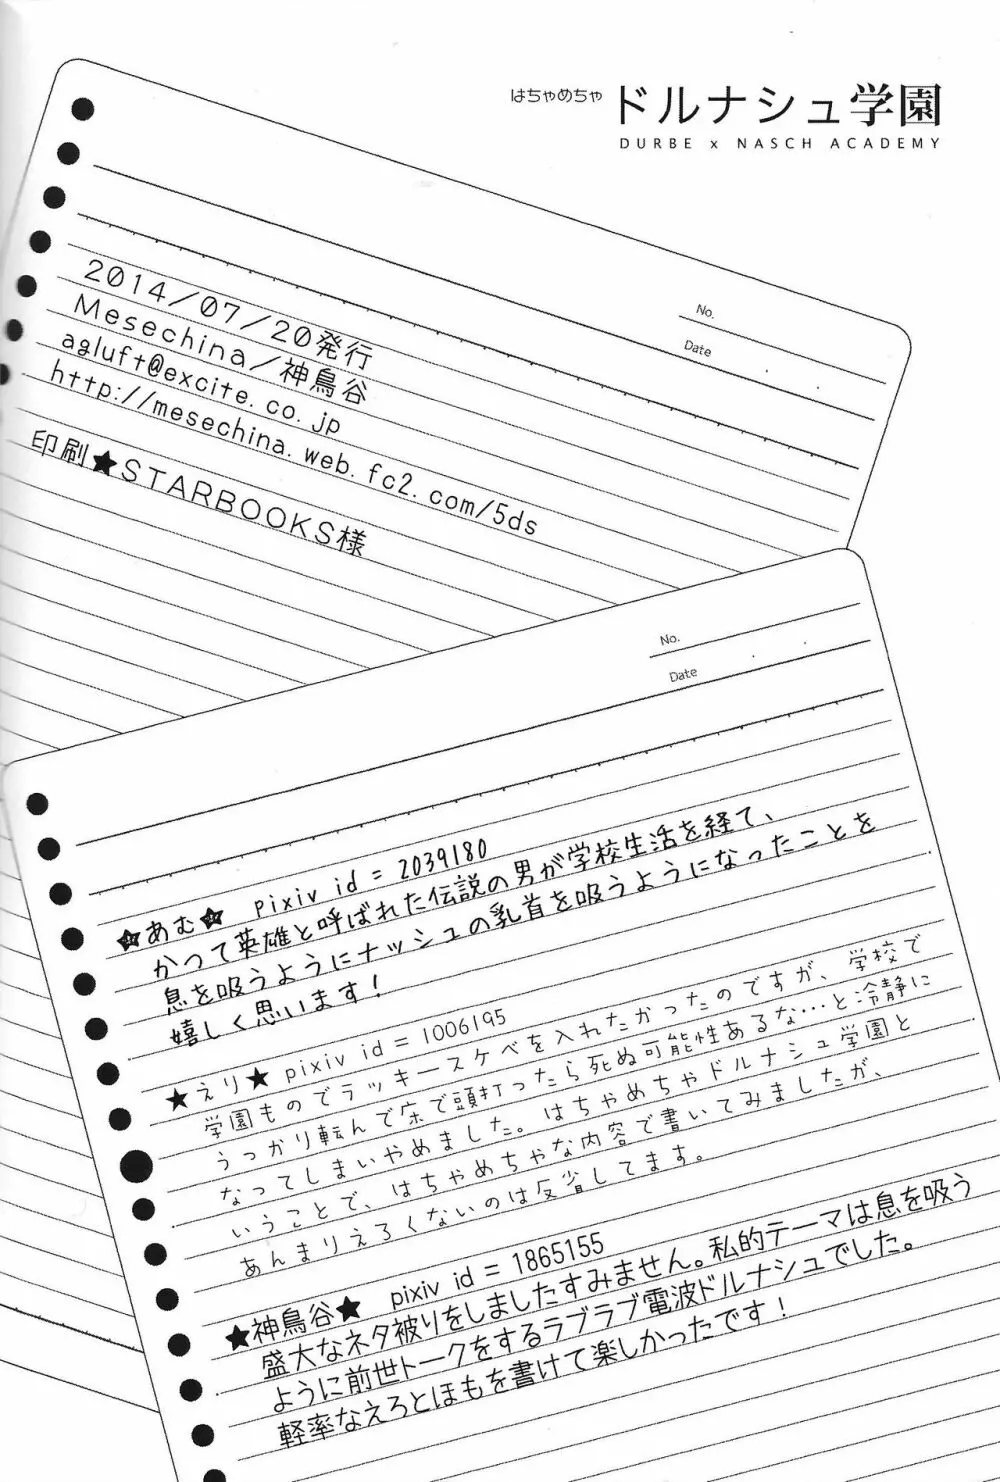 はちゃめちゃ ドルナシュ学園
DURBE x NASCH ACADEMY
No.
Date
2014/07/20発行
Mesechina/神鳥谷
agluft@excite.co.jp
http://mesechina.web.fc2.com/5ds
印刷★STARBOOKS様
No.
Date
★あむ★ pixiv id = 2039180
かつて英雄と呼ばれた伝説の男が学校生活を経て、
息を吸うようにナッシュの乳首を吸うようになったことを
嬉しく思います!
★えり★ pixiv id = 1006195
学園ものでラッキースケベを入れたかったのですが、学校で
うっかり転んで床で頭打ったら死ぬ可能性あるな…と冷静に
なってしまいやめました。はちゃめちゃドルナシュ学園と
いうことで、はちゃめちゃな内容で書いてみましたが、
あんまりえろくないのは反省してます。
★神鳥谷★ pixiv id = 1865155
盛大なネタ被りをしましたすみません。私的テーマは息を吸う
ように前世トークをするラブラブ電波ドルナシュでした。
軽率なえろとほもを書けて楽しかったです!